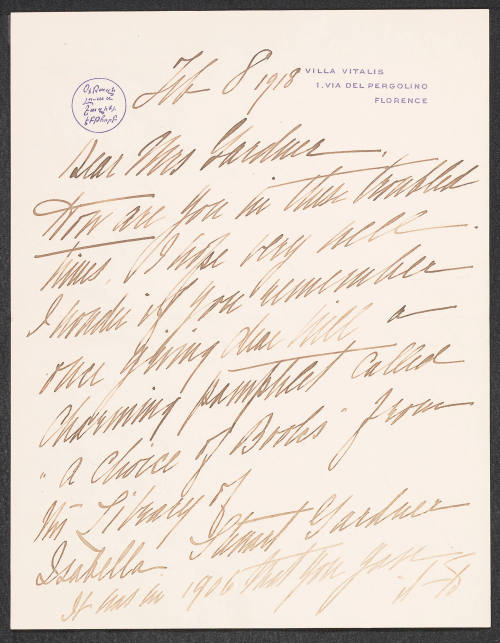 Feb 8 1918
VILLA VITALIS
1. VIA DEL PERGOLINO
FLORENCE
Dear Mrs Gardner,
How are you in these troubled
times. I hope very well.
I wonder if you remember
once giving dear Will a
charming pamphlet called
"A Choice of Books" from
the Library of
Isabella Stewart Gardner
It was in 1906 that you gave
it to